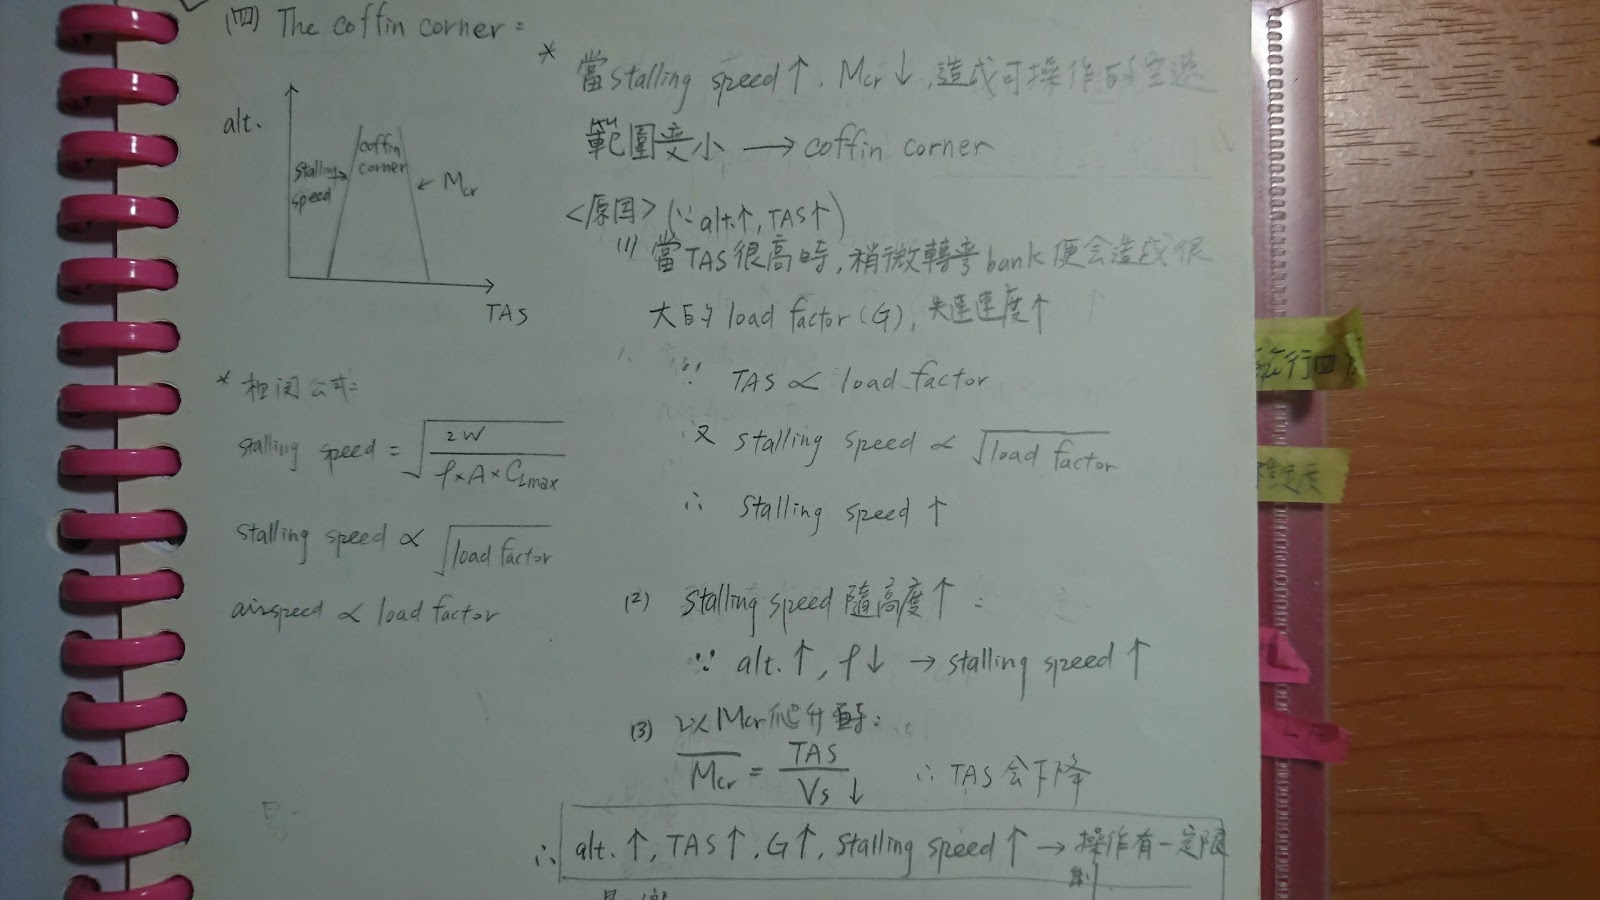 (四) The coffin corner:
alt.
stalling speed
coffin corner
Mcr
TAS
* 相関公式:
stalling speed = √(2W / ρ×A×CLmax)
stalling speed ∝ √load factor
airspeed ∝ load factor
* 當stalling speed↑, Mcr↓, 造成可操作的空速
範圍變小 → coffin corner
<原因> (∵ alt.↑, TAS↑)
(1) 當TAS很高時, 稍微轉彎bank便会造成很
大的 load factor (G), 失速速度↑
∵ TAS ∝ load factor
又 stalling speed ∝ √load factor
∴ stalling speed ↑
(2) stalling speed 隨高度↑:
∵ alt.↑, ρ↓ → stalling speed ↑
(3) 以Mcr爬升時:
Mcr = TAS / Vs↓ ∴ TAS会下降
∴ alt.↑, TAS↑, G↑, stalling speed↑ → 操作有一定限
制
行四
定度